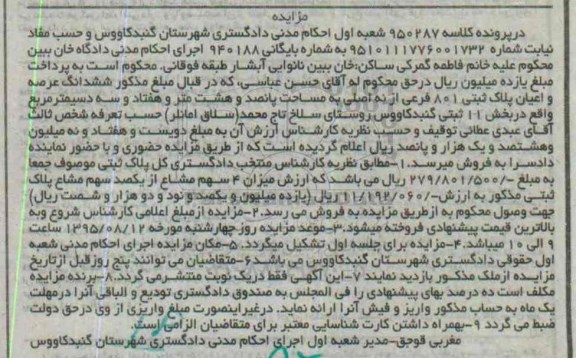 مزایده
درپرونده کلاسه ۹۵۰۲۸۷ شعبه اول احکام مدنی دادگستری شهرستان گنبدکاووس و حسب مفاد
نیابت شماره ۹۵۱۰۱۱۱۷۷۶۰۰۱۷۳۲ به شماره بایگانی ۹۴۰۱۸۸ اجرای احکام مدنی دادگاه خان ببین
محکوم علیه خانم فاطمه گمرکی ساکن:خان ببین نانوایی آبشار طبقه فوقانی. محکوم است به پرداخت
مبلغ یازده میلیون ریال درحق محکوم له آقای حسین عباسی، که در قبال مبلغ مذکور ششدانگ عرصه
و اعیان پلاک ثبتی ۸۰۱ فرعی از نه اصلی به مساحت پانصد و هشت متر و هفتاد و سه دسیمترمربع
واقع دربخش ۱۱ ثبتی گنبدکاووس روستای سلاخ تاج محمد(سلاق امانلر) حسب تعرفه شخص ثالث
آقای عبدی عطائی توقیف و حسب نظریه کارشناس ارزش آن به مبلغ دویست و هفتاد و نه میلیون
وهشتصد و یک هزار و پانصد ریال اعلام گردیده است که از طریق مزایده حضوری و با حضور نماینده
دادسرا به فروش میرسد.۱-مطابق نظریه کارشناس منتخب دادگستری کل پلاک ثبتی موصوف جمعا
به مبلغ -/۲۷۹/۸۰۱/۵۰۰ ریال می باشد که ارزش میزان ۴ سهم مشاع از یکصد سهم مشاع پلاک
ثبتی مذکور به ارزش-/۱۱/۱۹۲/۰۶۰ ریال (یازده میلیون و یکصد و نود و دو هزار و شصت ریال)
جهت وصول محکوم به ازطریق مزایده به فروش می رسد.۲-مزایده ازمبلغ اعلامی کارشناس شروع وبه
بالاترین قیمت پیشنهادی فروخته میشود.۳-موعد مزایده روز چهارشنبه مورخه ۱۳۹۵/۰۸/۱۲ ساعت
۹ الی ۱۰ میباشد.۴-مزایده برای جلسه اول تشکیل میگردد.۵-مکان مزایده اجرای احکام مدنی شعبه
اول حقوقی دادگستری شهرستان گنبدکاووس می باشد۶-متقاضیان می توانند پنج روزقبل ازتاریخ
مزایده ازملک مذکور بازدید نمایند ۷-این آگهی فقط دریک نوبت منتشرمی گردد.۸-برنده مزایده
مکلف است ده درصد بهای پیشنهادی را فی المجلس به صندوق دادگستری تودیع و الباقی آنرا درمهلت
یک ماه به حساب مذکور واریز و فیش آنرا ارائه نماید. درغیراینصورت مبلغ واریزی از وی درحق دولت
ضبط می گردد ۹-بهمراه داشتن کارت شناسایی معتبر برای متقاضیان الزامی است.
مغربی قوجق-مدیر شعبه اول اجرای احکام مدنی دادگستری شهرستان گنبدکاووس